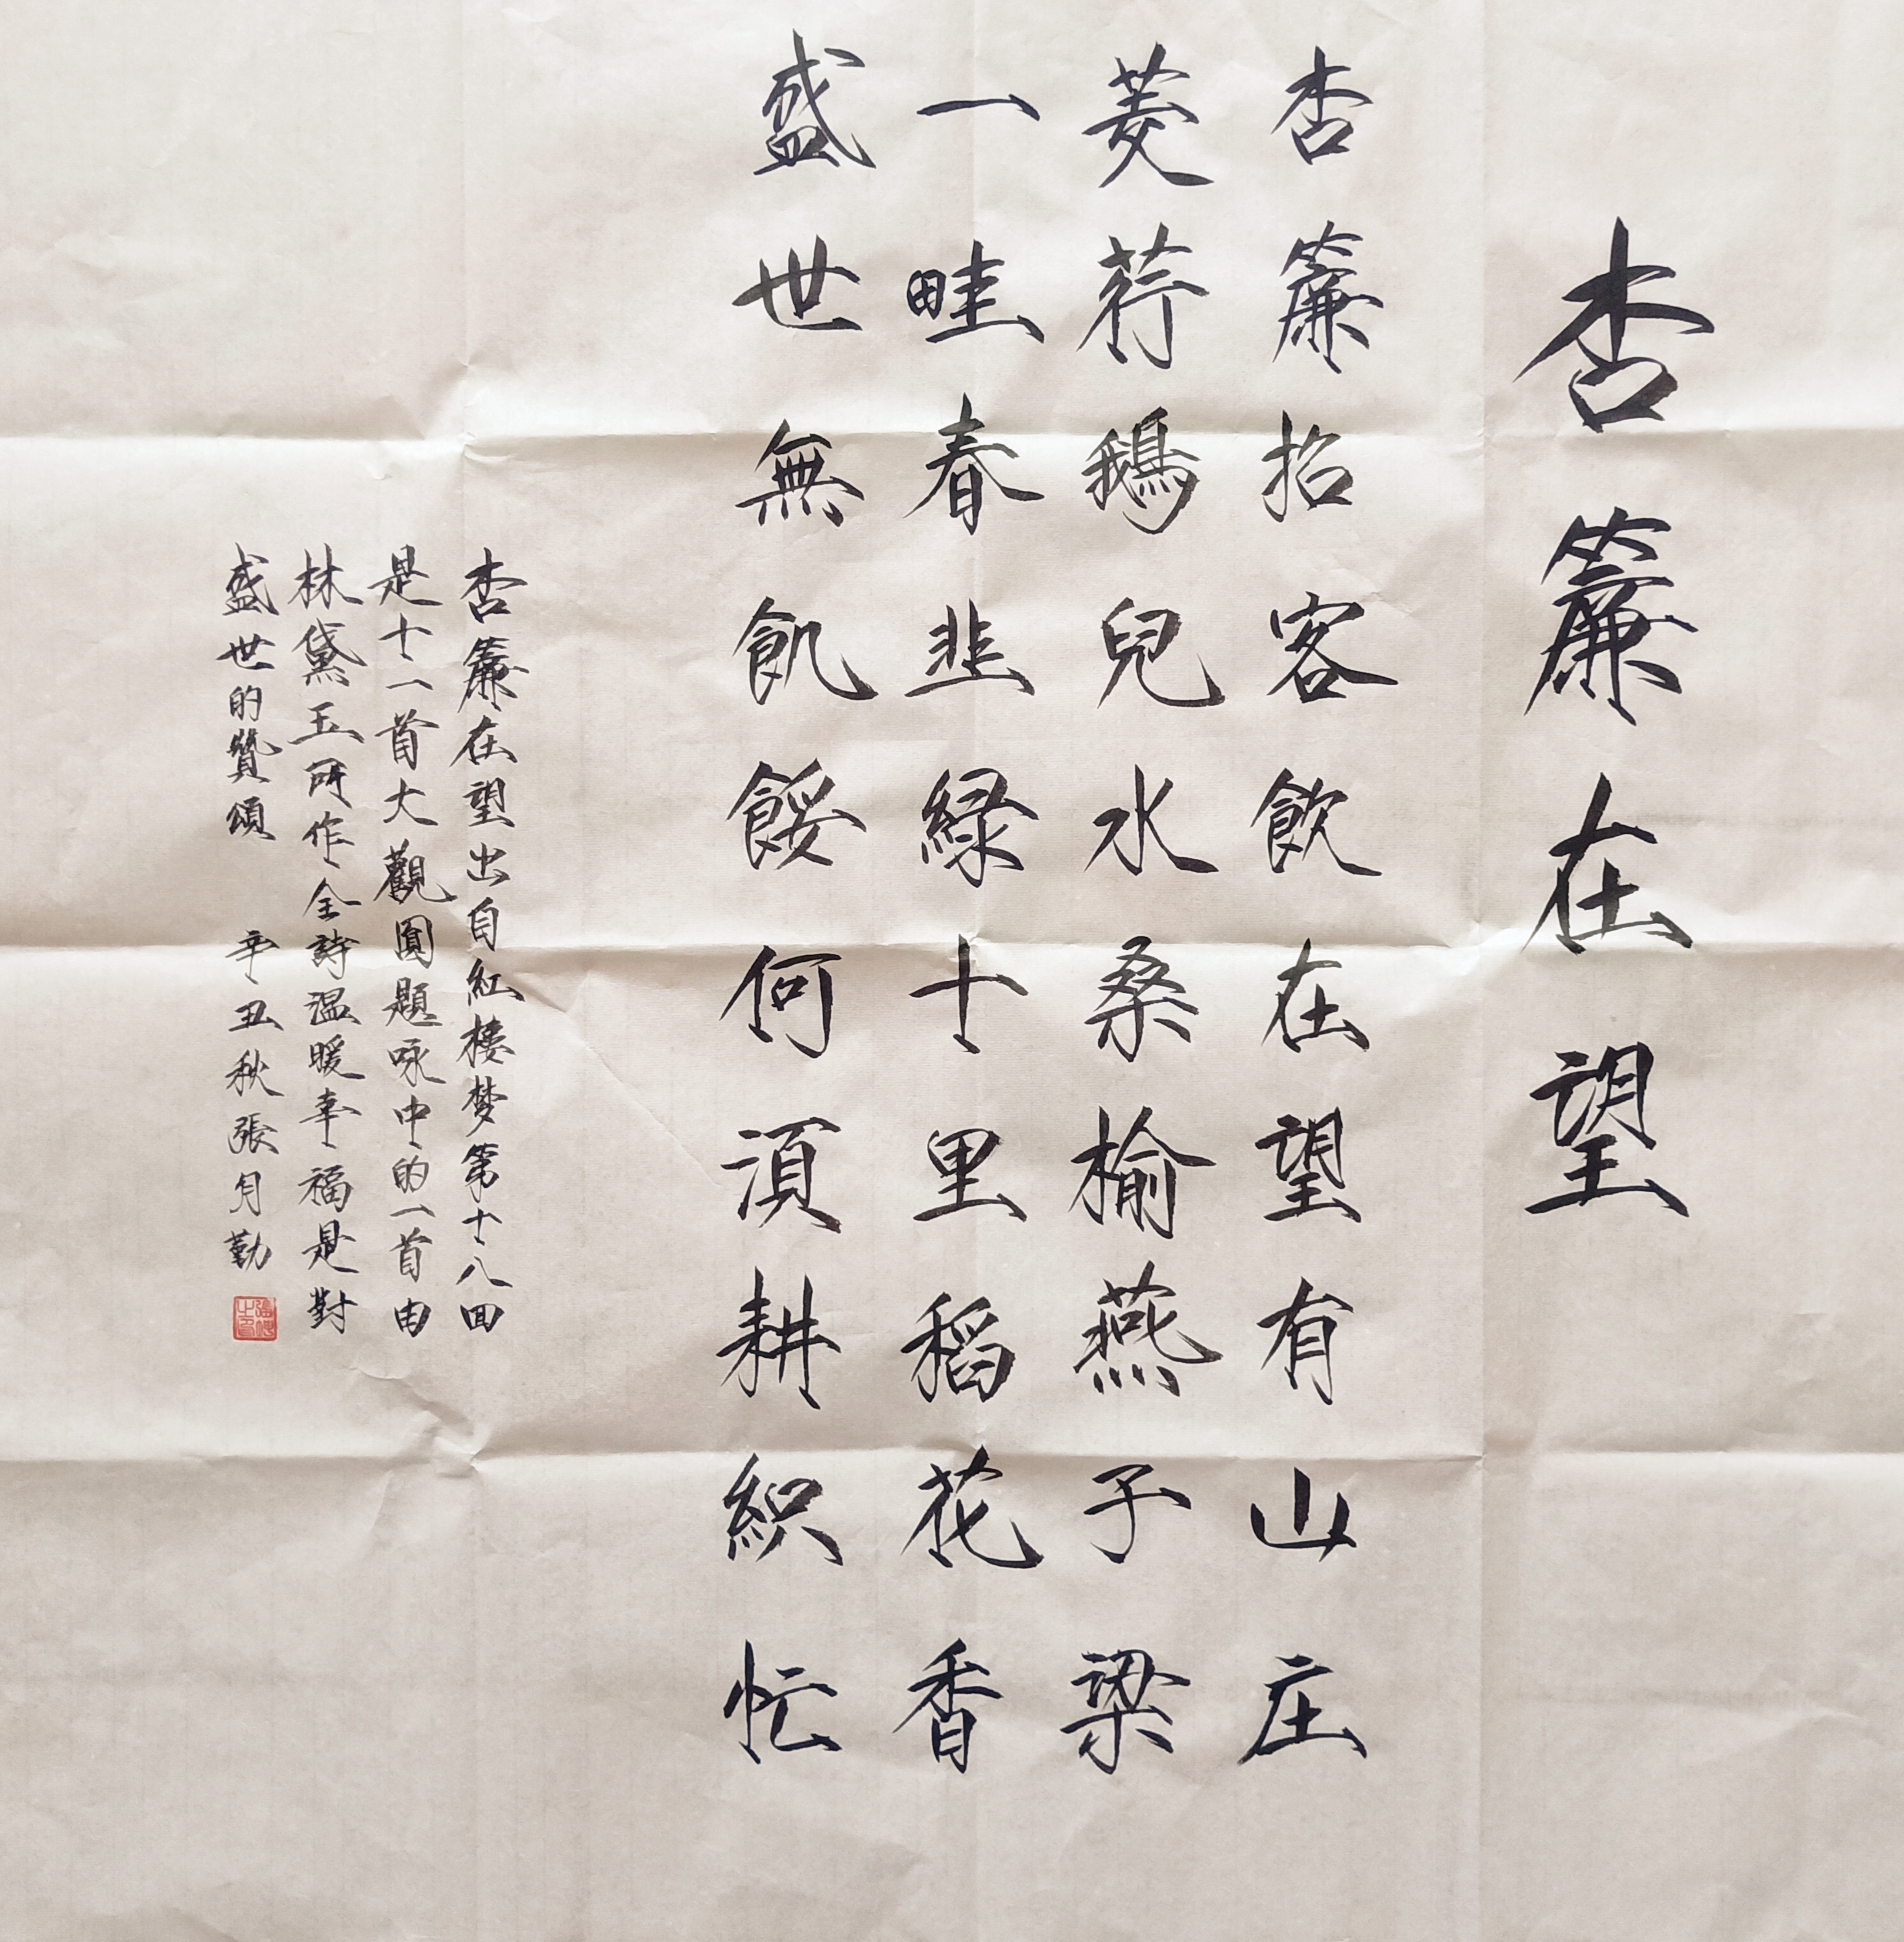 杏簾在望
杏簾招客飲在望有山庄
菱荇鵝兒水桑榆燕子梁
一畦春韭緑十里稻花香
盛世無飢餒何須耕織忙
杏簾在望出自紅楼梦第十八回
是十一首大觀園題咏中的一首由
林黛玉所作全詩温暖幸福是對
盛世的贊頌 辛丑秋張月勤